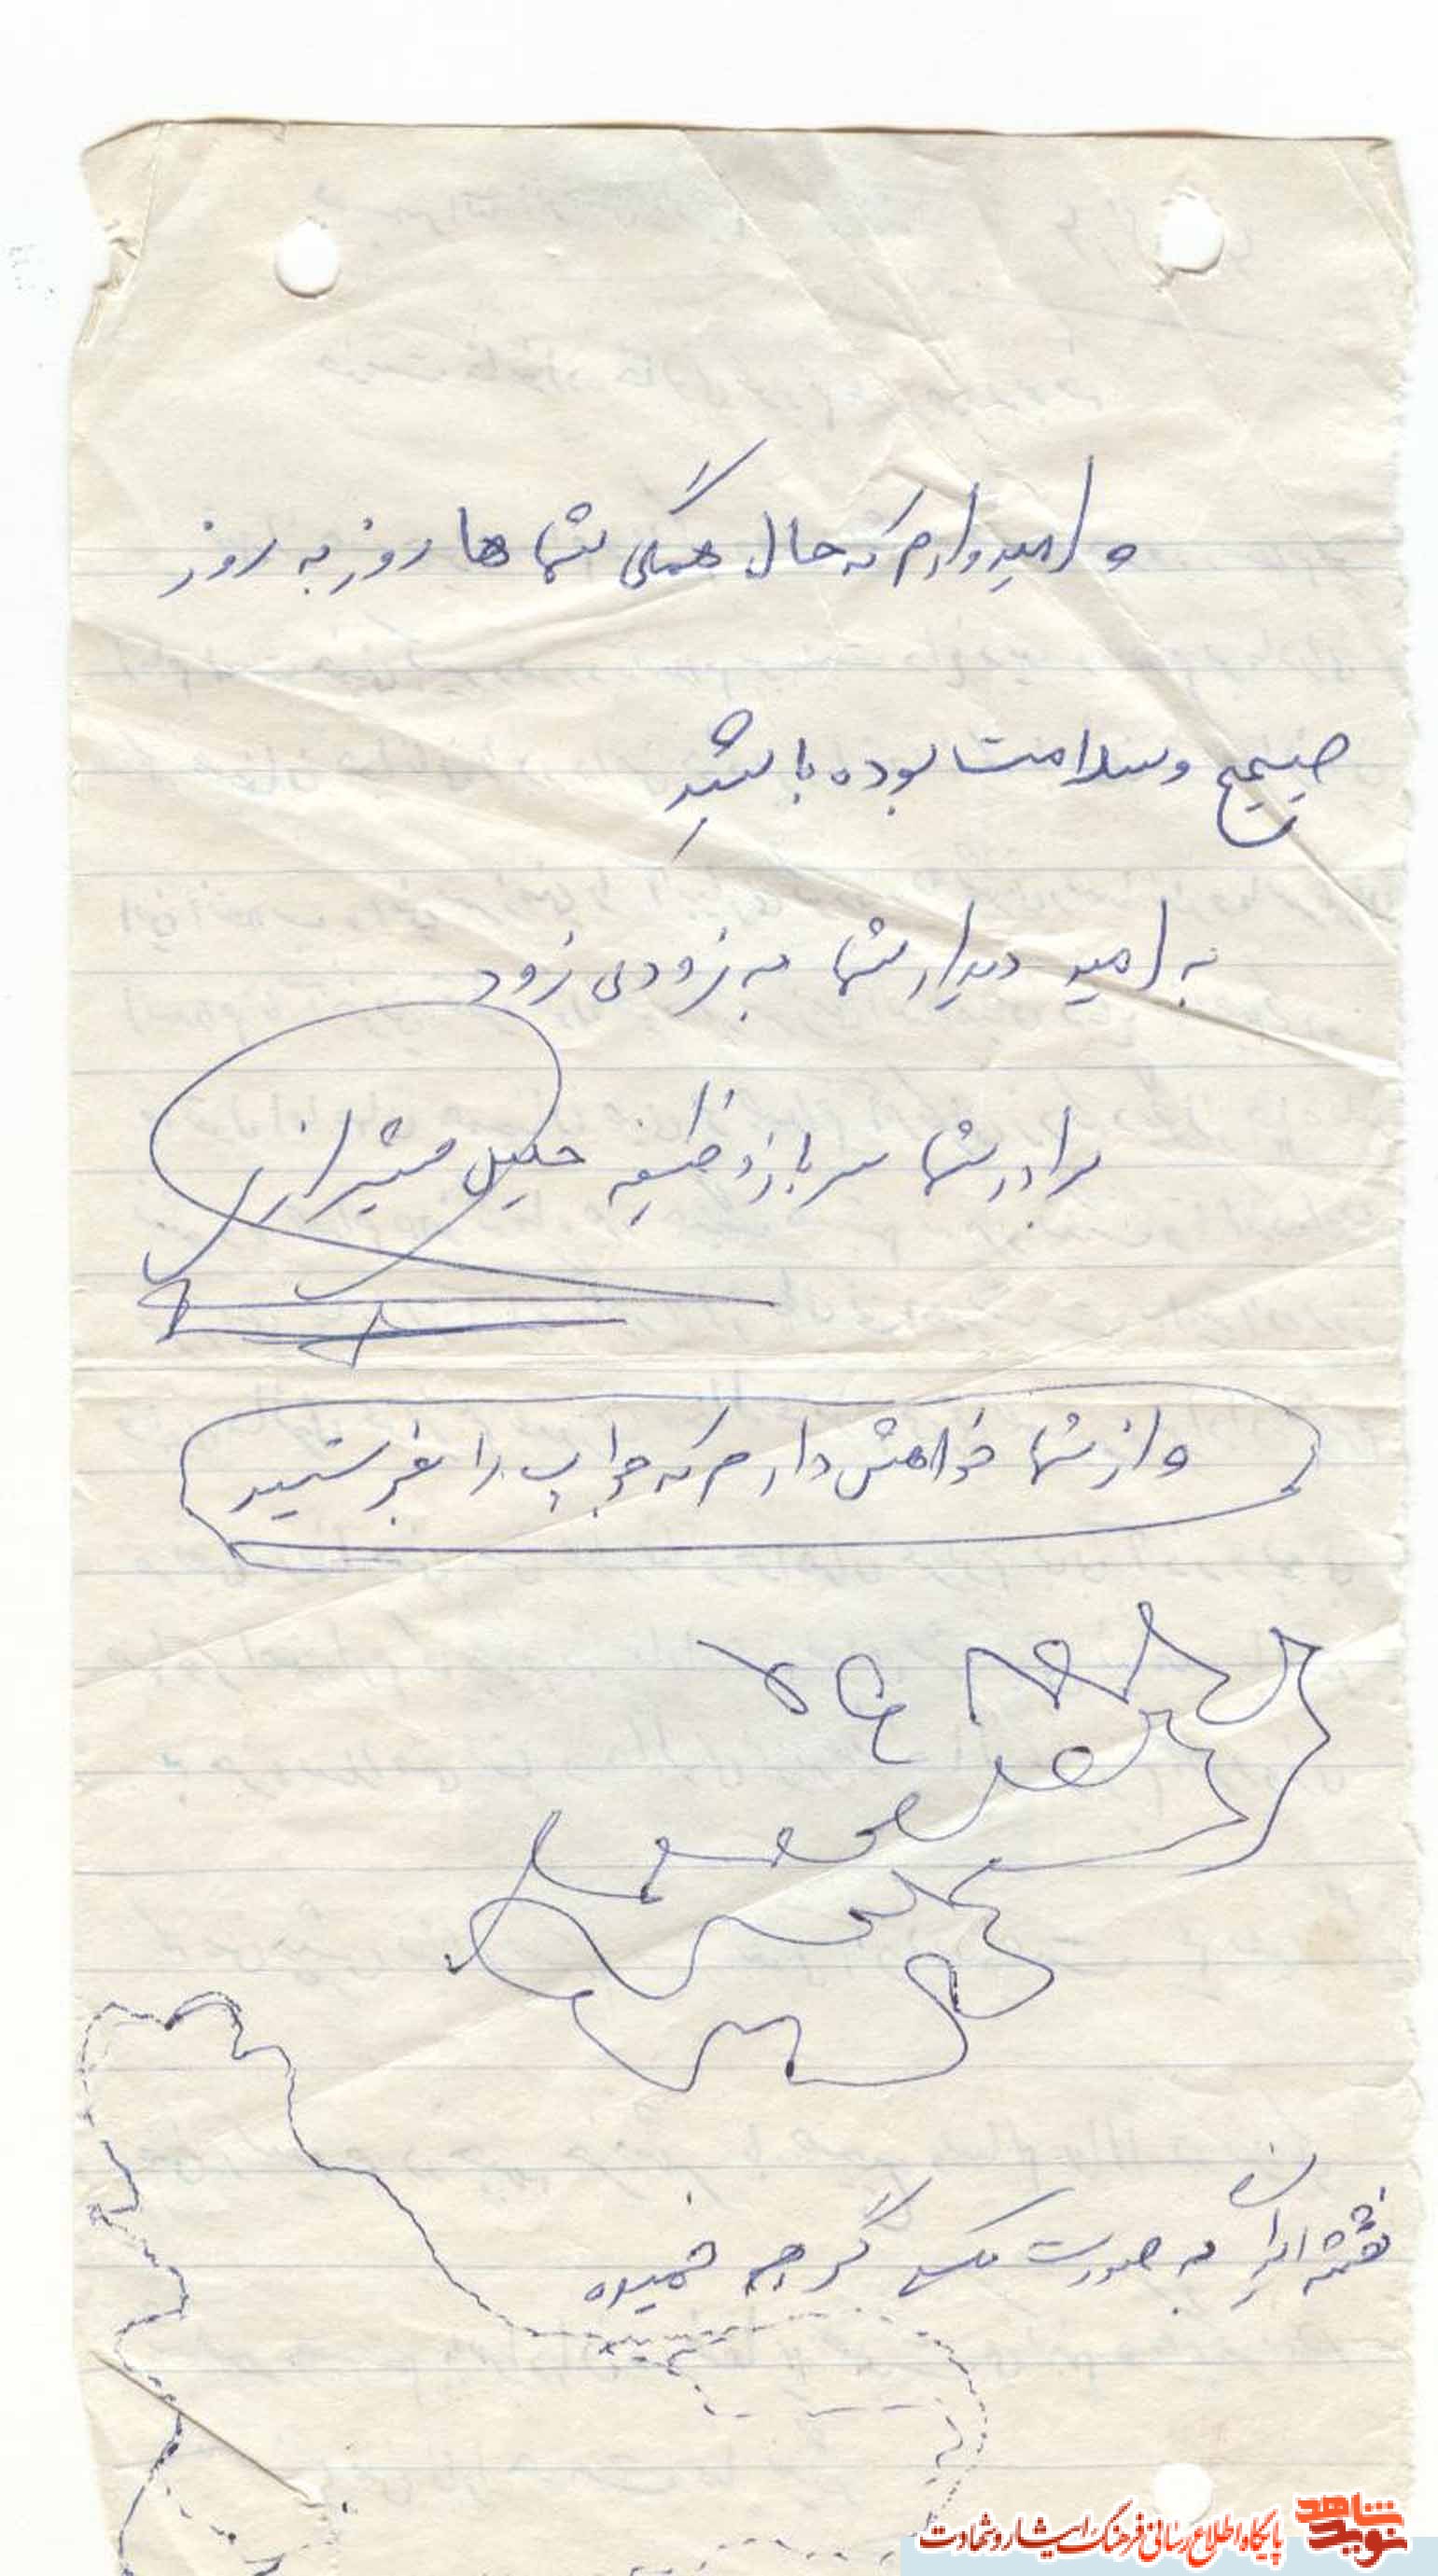 و امیدوارم که حال همگی شما ها روز به روز
صحیح و سلامت بوده باشید
به امید دیدار شما به زودی زود
برادر شما سرباز وظیفه خلیل شیرازی
و از شما خواهش دارم که جواب را بفرستید
نقشه ایران به صورت گربه خمیده
نوید شاهد
پایگاه اطلاع رسانی فرهنگ ایثار و شهادت